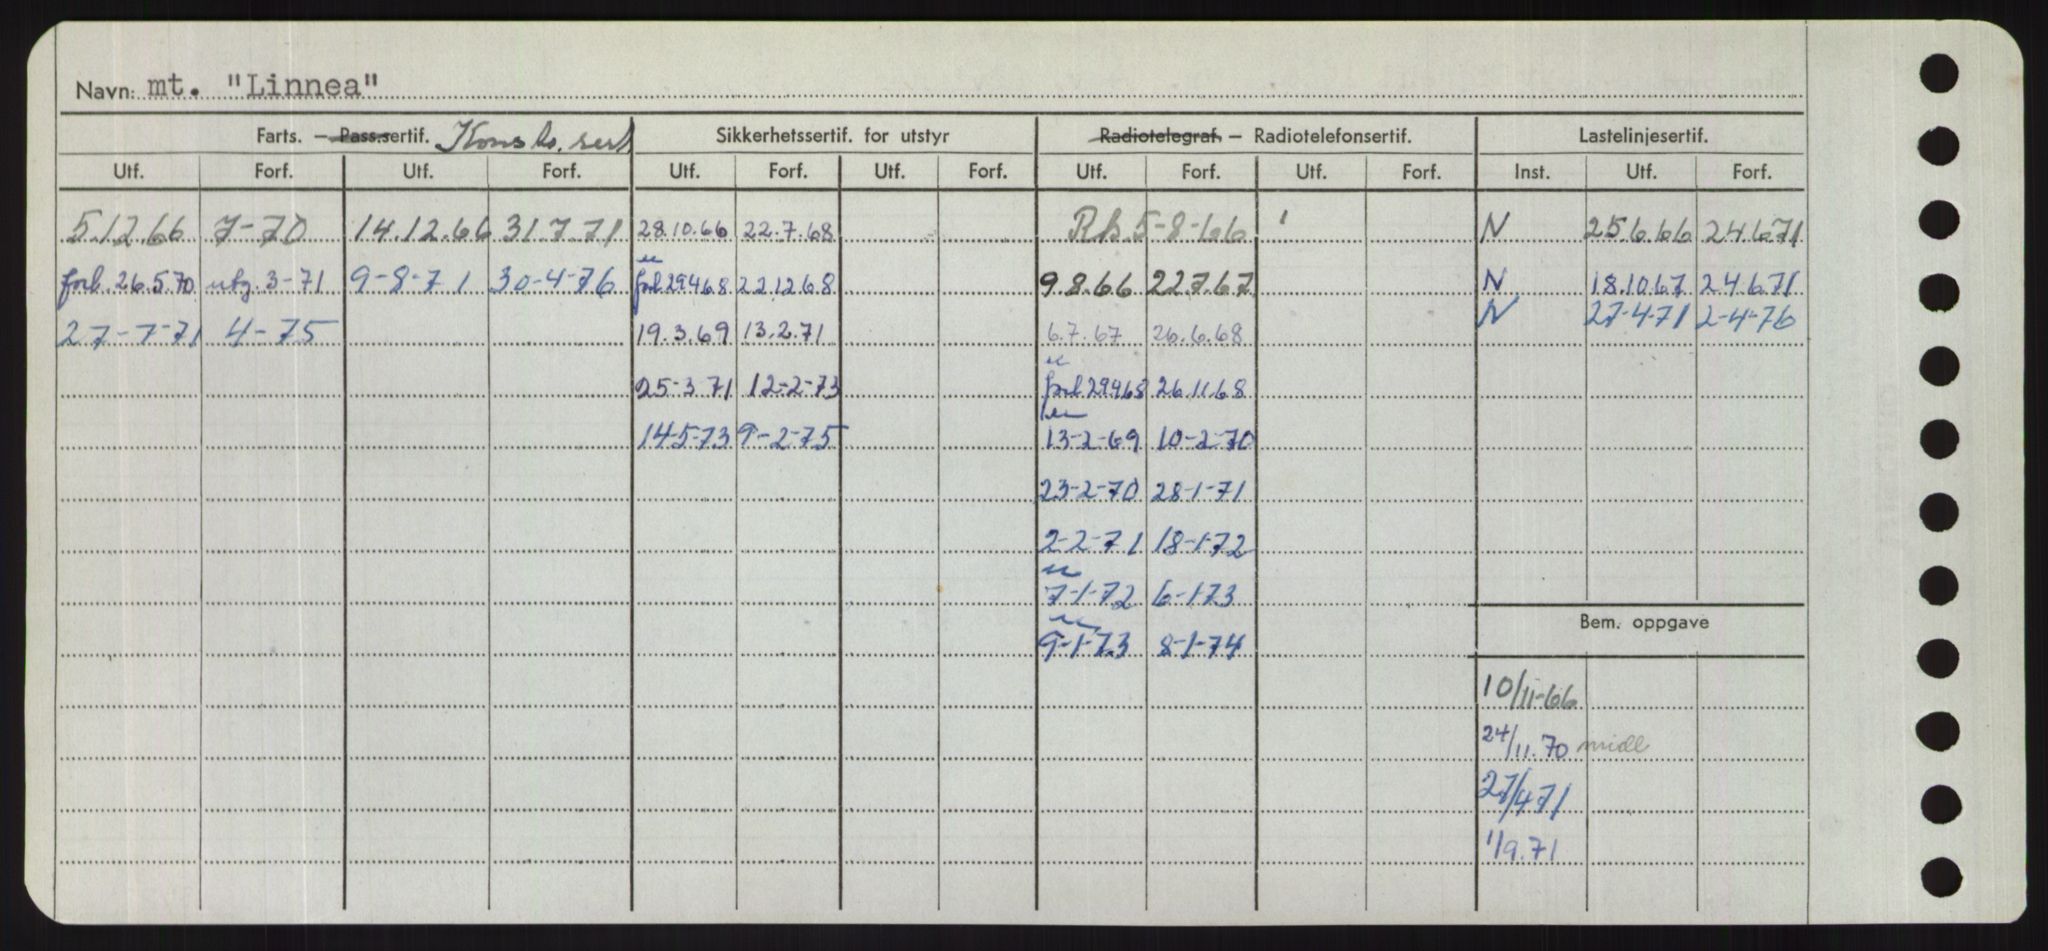 Navn: mt. "Linnea"
Farts. – Pass.sertif. Konstr. sert Sikkerhetssertif. for utstyr Radiotelegraf – Radiotelefonsertif. Lastelinjesertif.
Utf. Forf. Utf. Forf. Utf. Forf. Utf. Forf. Utf. Forf. Utf. Forf. Inst. Utf. Forf.
5.12.66 7-70 14.12.66 31.7.71 28.10.66 22.7.68 Rb. 5-8-66 N 25.6.66 24.6.71
forl. 26.5.70 utg. 3-71 9-8-71 30-4-76 forl 29.4.68 22.12.68 9.8.66 22.7.67 N 18.10.67 24.6.71
N 27-4-71 2-4-76
27-7-71 4-75 19.3.69 13.2.71 6.7.67 26.6.68
25-3-71 12-2-73 forl 29.4.68 26.11.68
14-5-73 9-2-75 13-2-69 10-2-70
23-2-70 28-1-71
2-2-71 18-1-72
7-1-72 6-1-73
Bem. oppgave
9-1-73 8-1-74
10/11-66
24/11.70 midl
27/4 71
1/9.71